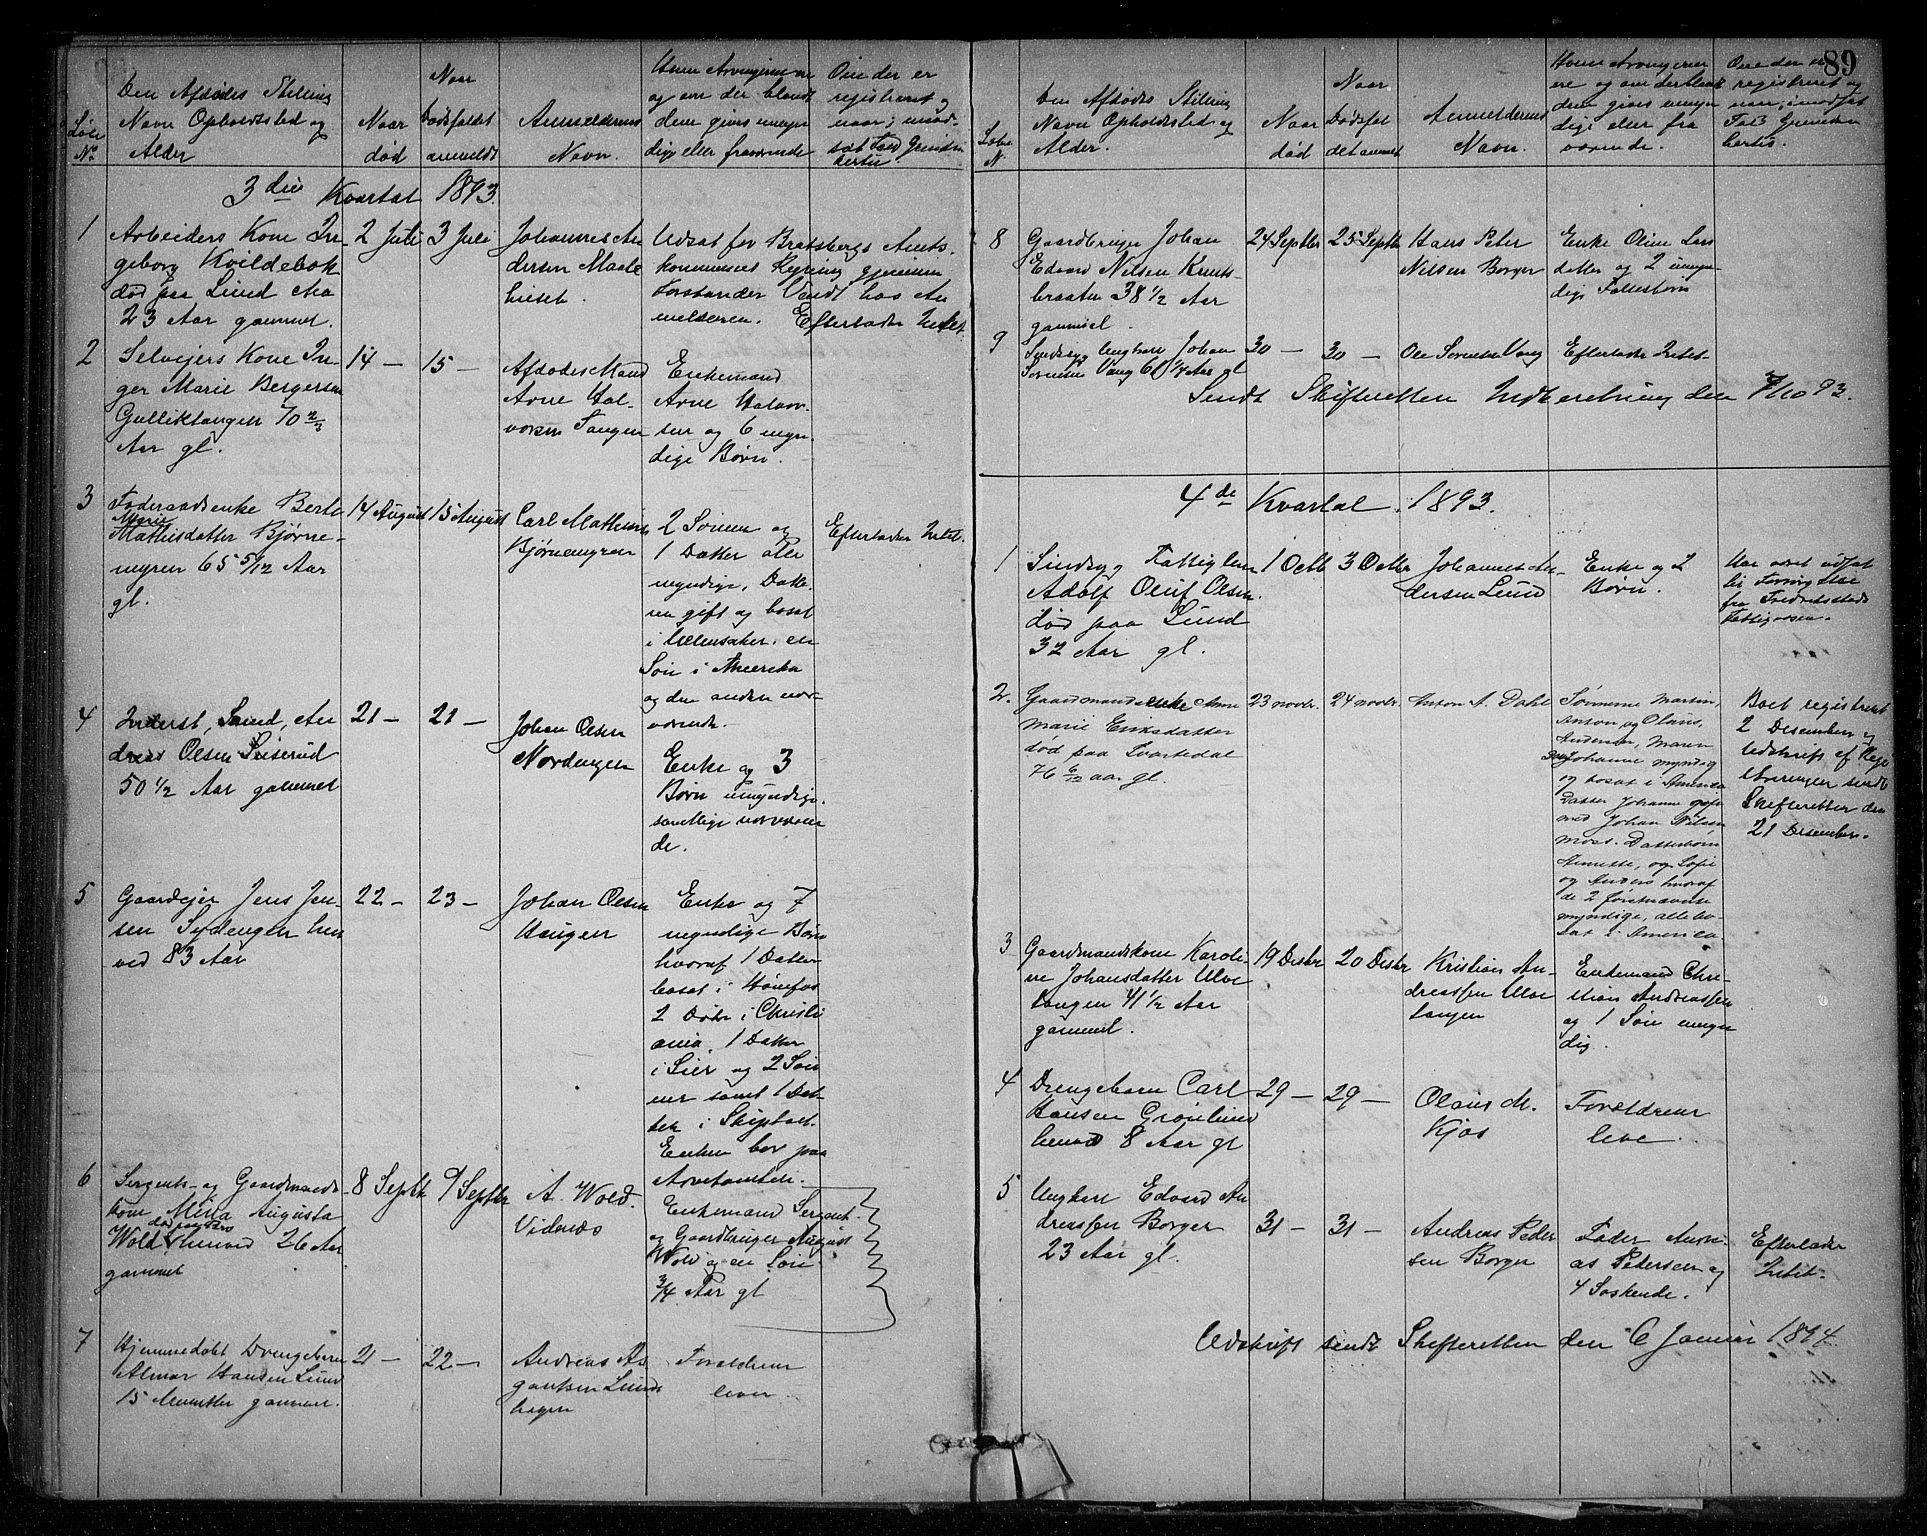 89
Løbe
No
Den Afdødes Stilling
Navn Opholdtsted og
Alder
Naar
død
Naar
Dødsfaldet
anmeldt
Anmelderens
Navn.
Hvem Arvingerne ere
og om der blandt
dem givis umyn
dige eller fraværende
Om der er
registreret og
naar; modsat Fald Grunden
hertil
3die Kvartal 1893.
1
Arbeiders Kone In-
geborg Kvildebæk
død paa Lund
23 Aar gammel.
2 Juli
3 Juli
Johannes An
dersen
Udsat for Bratsbergs Amts-
kommunes Regning gjennem
Forstander Vendt hos An
melderen. Efterlader Intet
2
Selveiers Kone In-
ger Marie Bergersen
Gulliktangen 70 2/3
Aar gl.
14 —
15 —
Afdødes Mand
Arne Hal-
vorsen Tangen
Enkemand
Arne Halvor-
sen og 6 myn-
dige Børn.
3
Føderaadsenke Berte
Marie
Mathisdatter Bjørne-
myren 65 5/12 Aar
gl.
14 August
15 August
Carl Mathisen
Bjørnengren
2 Sønner og
1 Datter alle
myndige, Datte-
ren gift og bosat
i Ullensaker. en
Søn i Amerika
og den anden nær-
værende.
Efterlader Intet.
4
Inderst, Smed, An
dreas Olsen
50 1/2 Aar gammel
21 —
21 —
Johan Olsen
Nordengen
Enke og 3
Børn umyndige.
samtlige nærværen
de.
5
Gaardejer Jens Jen-
sen Sydengen hen
ved 83 Aar
22 —
23 —
Johan Olsen
Haugen
Enke og 7
myndige Børn
hvoraf 1 Datter
bosat i Hønefos
2 Døtre i Christi
ania, 1 Datter
i Lier og 2 Søn
ner samt 1 Dat-
ter i Skiptvet.
Enken bor paa
Arvetomten.
6
Sergent- og Gaardmands-
kone Mina Augusta
Wold henved 26 Aar
gammel
8 Septbr
9 Septbr
A. Wold.
Vidnes
Enkemand Sergent-
og Gaardbruger August
Wold og en Søn
3/4 Aar gl
7
Hjemmedøbt Drengebarn
Almar Hansen Lund
15 Maaneder gammel.
21 —
22 —
Andreas
Lunds
hagen
Forældrene
lever.
Løbe
N.
Den Afdødes Stilling
Navn Opholdtsted og
Alder.
Naar
død
Naar
Dødsfal
det anmel
Anmelderens
Navn.
Hvem Arvingerne
ere og om der blandt
dem givis umyn
dige eller fra
værende.
Om der er
registreret og
naar; i modsat
Fald Grunden
hertil.
8
Gaardbruger Johan
Edvard Nilsen Knuts-
braaten 38 1/2 Aar
gammel.
24 Septbr
25 Septbr
Hans Peter
Nilsen Borger
Enke Oline Lars
datter og 2 umyn-
dige Fællesbørn
9
Sindsyg Ungkarl Johan
Sørensen Vang 61 1/4 Aar gl
30 —
30 —
Ole Sørensen Vang
Efterlader Intet
Sendt Skifteretten Indberetning den 7/10 93.
4de Kvartal 1893.
1
Sindsyg Fattiglem
Adolf Oluf Olsen.
død paa Lund
32 Aar gl.
1 Octb
3 Octbr
Johannes An-
dersen Lund
Enke og 2
Børn.
Har været udsat
til Forpleielse
fra Fredriksstads
Fattigvæsen.
2.
Gaardmandsenke Anne
Marie Eriksdatter
død paa Svartedal
76 6/12 aar gl.
23 novbr.
24 novbr.
Anton A. Dahl
Sønnerne Martin,
Anton og Olaus
Andersen, Maren
Johanne myndig
og bosat i America
Datter Johanne gift
med Johan Nilsen
Moss. Datterbørn
Annette, og Sofie
og Anders hvoraf
de 2 førstnævnte
myndige, alle bo-
sat i America.
Boet registreret
2 Desember og
Udskrift af Regi
streringen sendt
Skifteretten den
21 Desember.
3
Gaardmandskone Karoli-
ne Johansdatter Ulve
tangen 41 1/2 Aar
gammel.
19 Desbr
20 Desbr
Kristian An-
dreassen Ulve
tangen
Enkemand Chri-
stian Andreassen
og 1 Søn umyn
dig.
4
Drengebarn Carl
Hansen Grønlund
henved 8 Aar gl
29 —
29 —
Olaus M.
Kjos
Forældrene
leve.
5
Ungkarl Edvard An
dreassen Borger
23 Aar gl.
31 —
31 —
Andreas Peder
sen Borger
Fader Andre-
as Pedersen og
4 Søskende.
Efterlader
Intet.
Udskrift sendt Skifteretten den 6 Januar 1894.